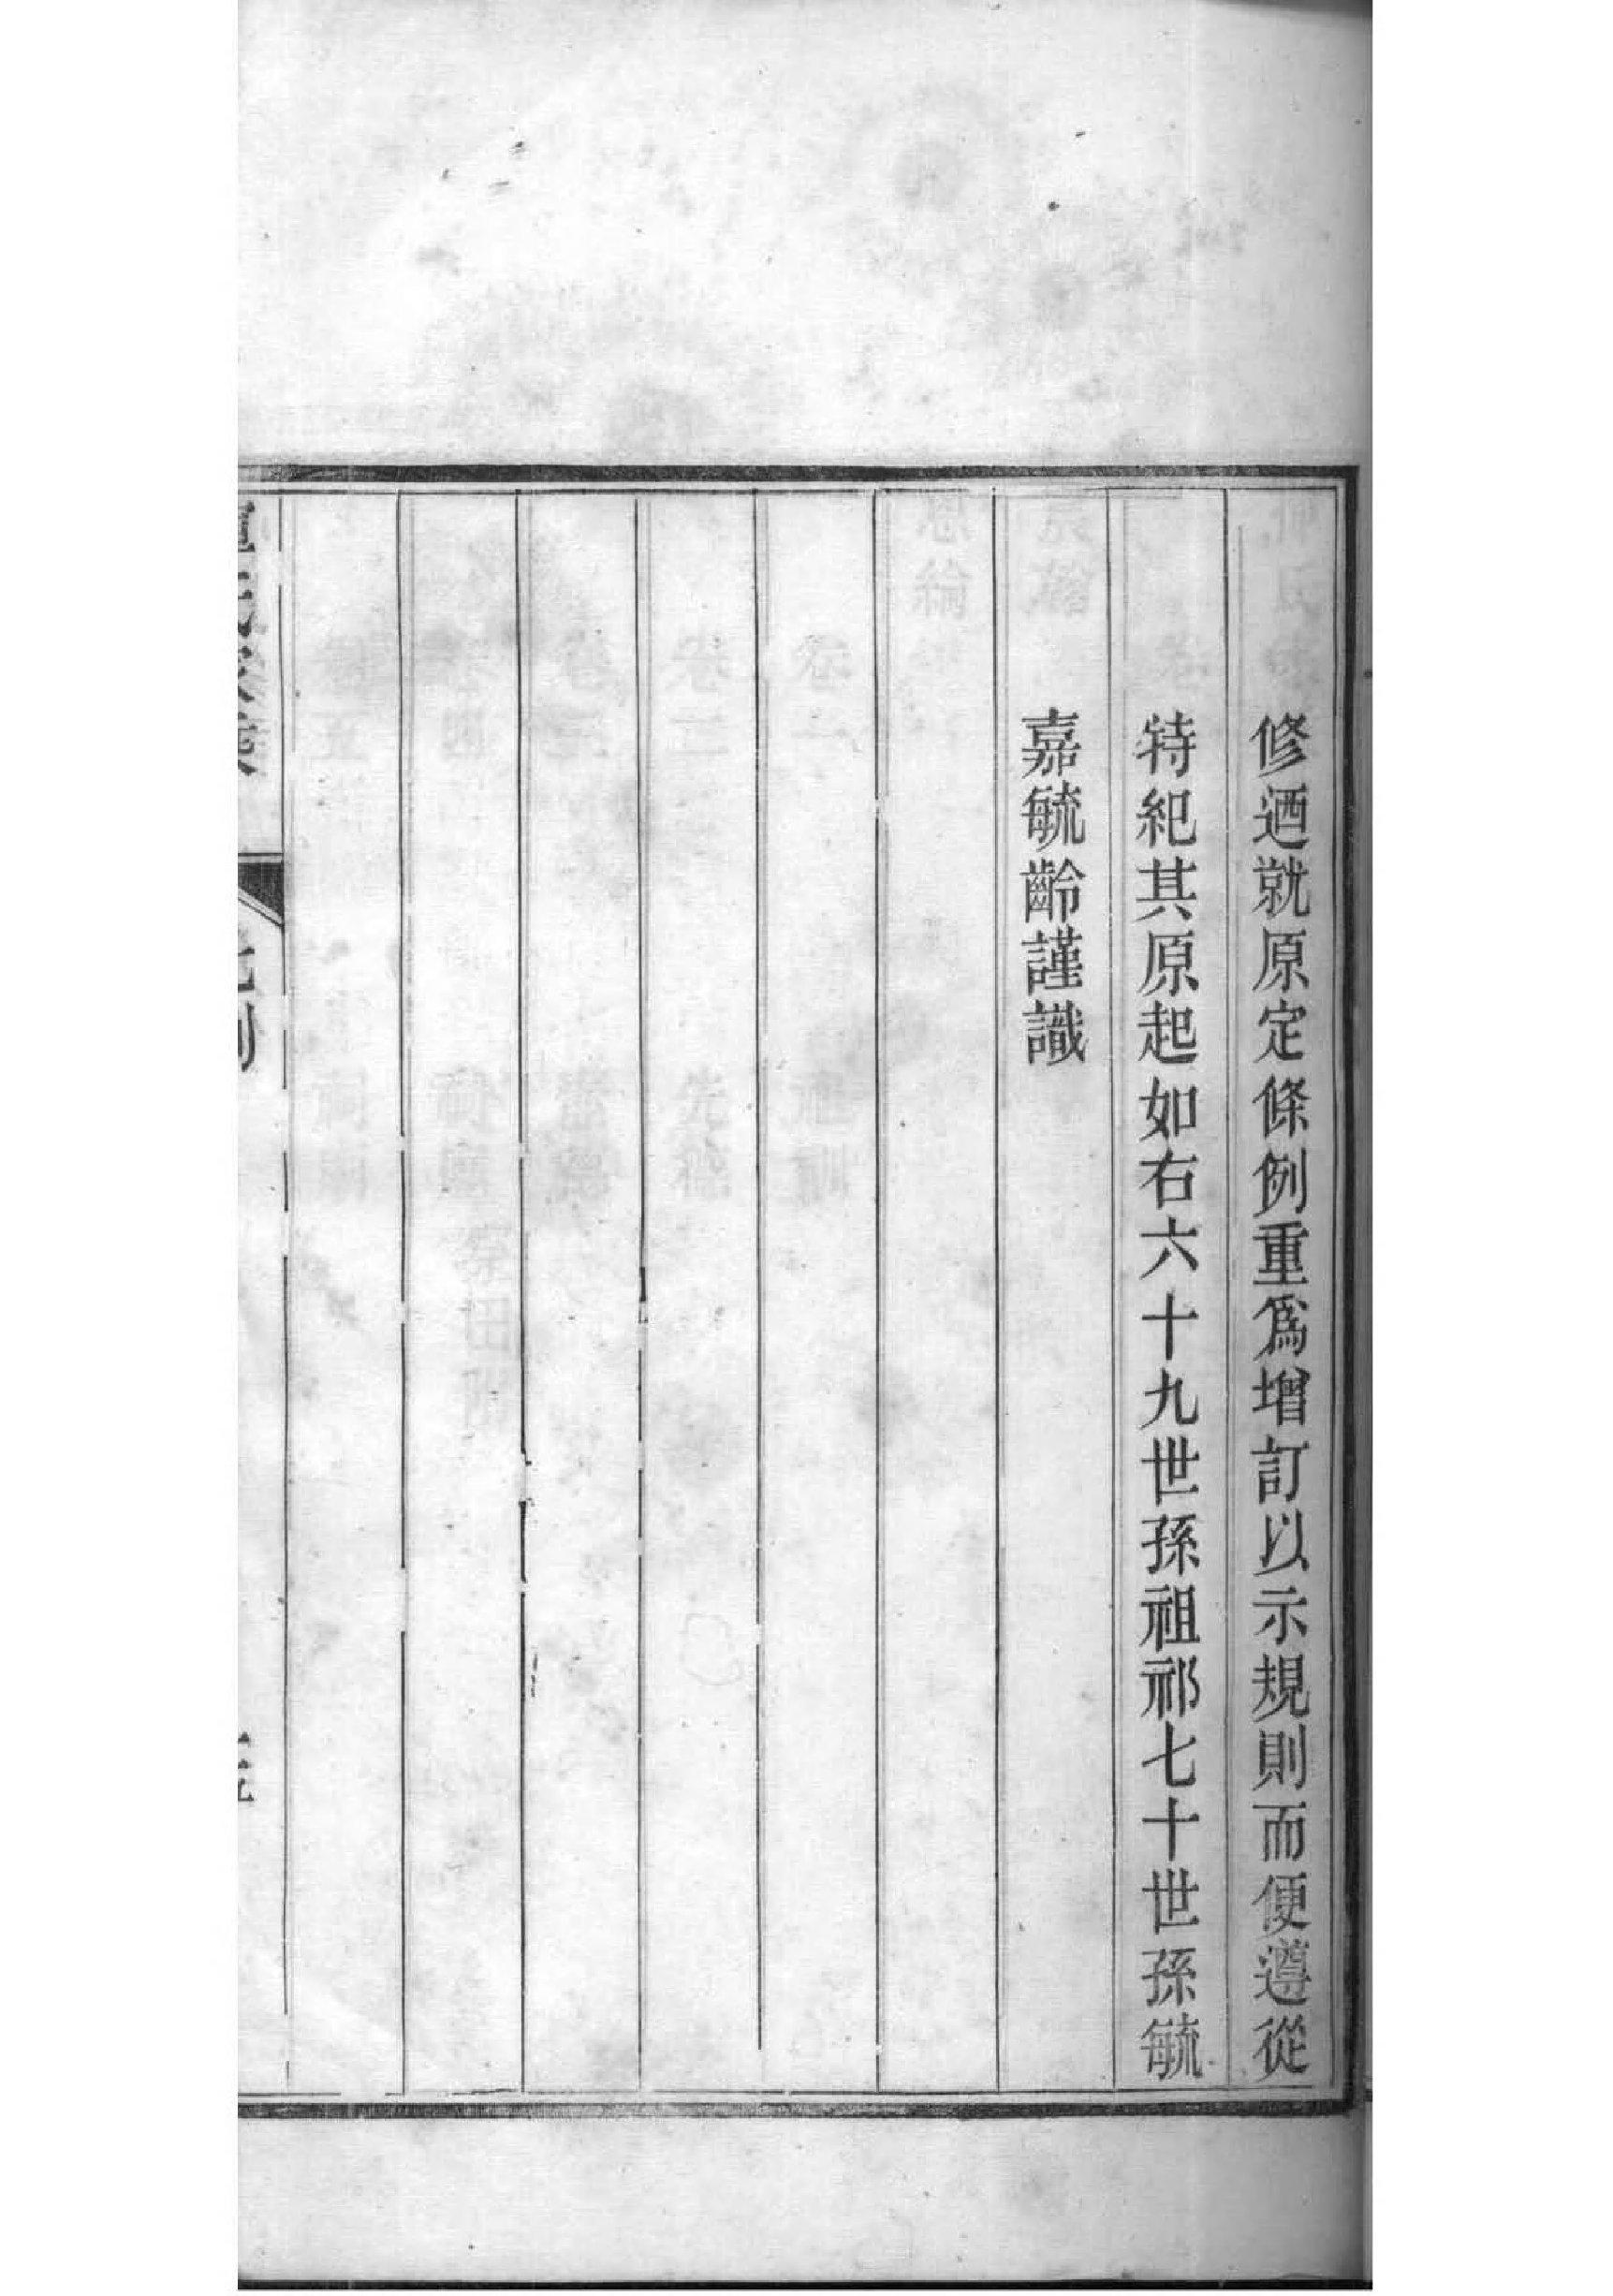 修迺就原定條例重爲增訂以示規則而便遵從
特紀其原起如右六十九世孫祖祁七十世孫毓
嘉毓齡謹識